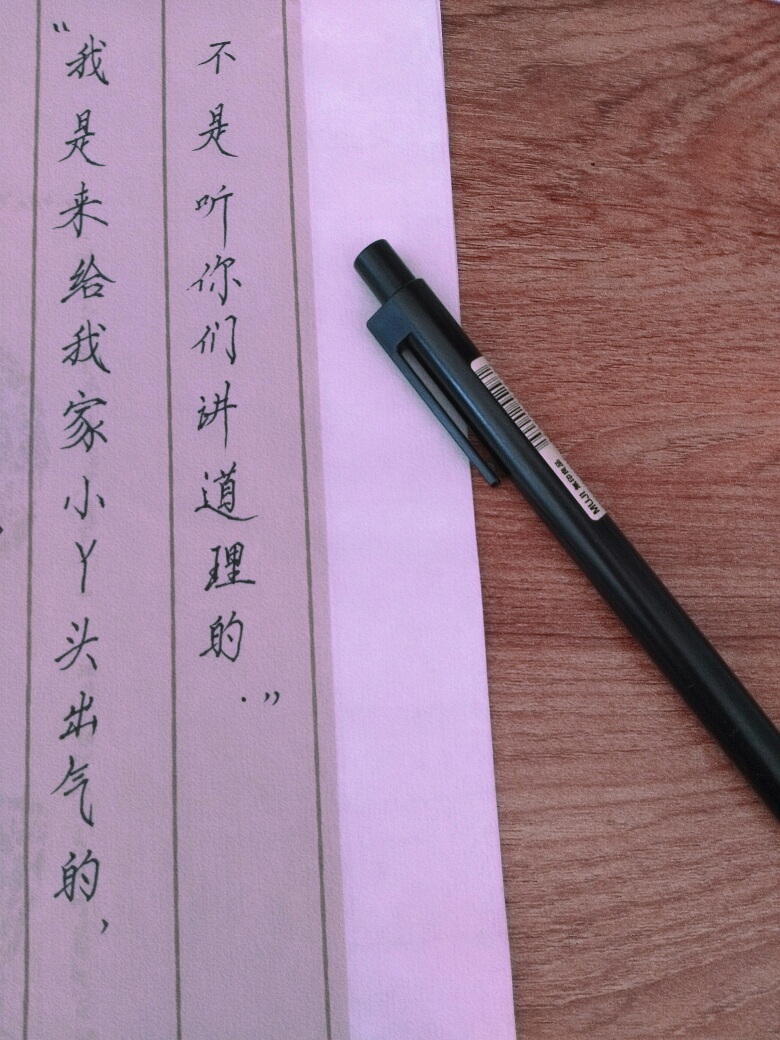 “我是来给我家小丫头出气的，
不是听你们讲道理的.”
MUJI 無印良品